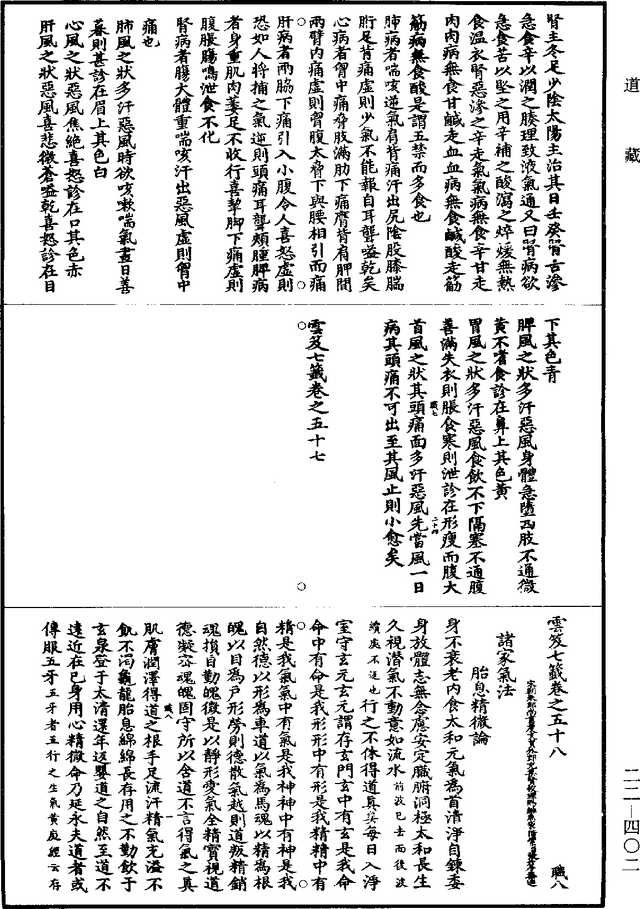 道藏
腎主冬足少陰太陽主治其日壬癸腎苦滲
急食辛以潤之腠理致液氣通又曰腎病欲
急食苦以堅之用辛補之酸瀉之焠煖無熱
食溫衣腎惡滲之辛走氣氣病無食辛甘走
肉肉病無食甘鹹走血血病無食鹹酸走筋
筋病無食酸是謂五禁而多食也
肺病者喘咳逆氣肩背痛汗出尻陰股膝腨
胻足背痛虛則少氣不能報自耳聾嗌乾矣
心病者胷中痛脅肢滿肋下痛膺背肩胛間
兩臂內痛虛則胷腹太脅下與腰相引而痛
肝病者兩脇下痛引入小腹令人喜怒虛則
恐如人將捕之氣逆則頭痛耳聾頰腫脾病
者身重肌肉萎足不收行喜犎脚下痛虛則
腹脹腸鳴泄食不化
腎病者腸大體重喘咳汗出惡風虛則胷中
痛也
肺風之狀多汗惡風時欲咳嗽喘氣晝日善
暮則甚診在眉上其色白
心風之狀惡風焦絶喜怒診在口其色赤
肝風之狀惡風喜悲微蒼嗌乾喜怒診在目
下其色青
脾風之狀多汗惡風身體急墮四肢不通微
黃不嗜食診在鼻上其色黃
胃風之狀多汗惡風食飲不下隔塞不通腹
善滿失衣則脹食寒則泄診在形瘦而腹大
首風之狀其頭痛面多汗惡風先當風一日
病其頭痛不可出至其風止則小愈矣
雲笈七籤卷之五十七
雲笈七籤卷之五十八 職八
諸家氣法
胎息精微論
身不衰老內食太和元氣為首清淨自鍊委
身放體志無念慮安定臟腑洞極太和長生
久視潛氣不動意如流水前波已去而後波
續處不返也行之不休得道真矣每日入淨
室守玄元玄元謂存玄門玄中有玄是我命
命中有命是我形形中有形是我精精中有
精是我氣氣中有氣是我神神中有神是我
自然德以形為車道以氣為馬魂以精為根
魄以目為戶形勞則德散氣越則道叛精銷
魂損目動魄微是以靜形愛氣全精寳視道
德凝宓魂魄固守所以含道不言得氣之真
肌膚潤澤得道之根手足流汗精氣充溢不
飢不渴龜龍胎息綿綿長存用之不勤飲于
玄泉登于太清還年返嬰道之自然至道不
遠近在已身用心精微命乃延永夫道者或
傳服五牙五牙者五行之生氣黃庭經云存
二二—四〇二